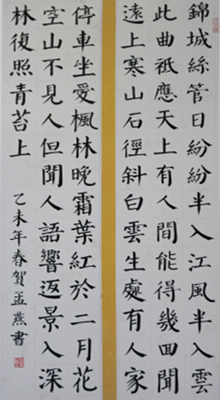 錦城絲管日紛紛半入江風半入雲
此曲祗應天上有人間能得幾回聞
遠上寒山石徑斜白雲生處有人家
停車坐愛楓林晚霜葉紅於二月花
空山不見人但聞人語響返景入深
林復照青苔上
乙未年春賀孟燕書